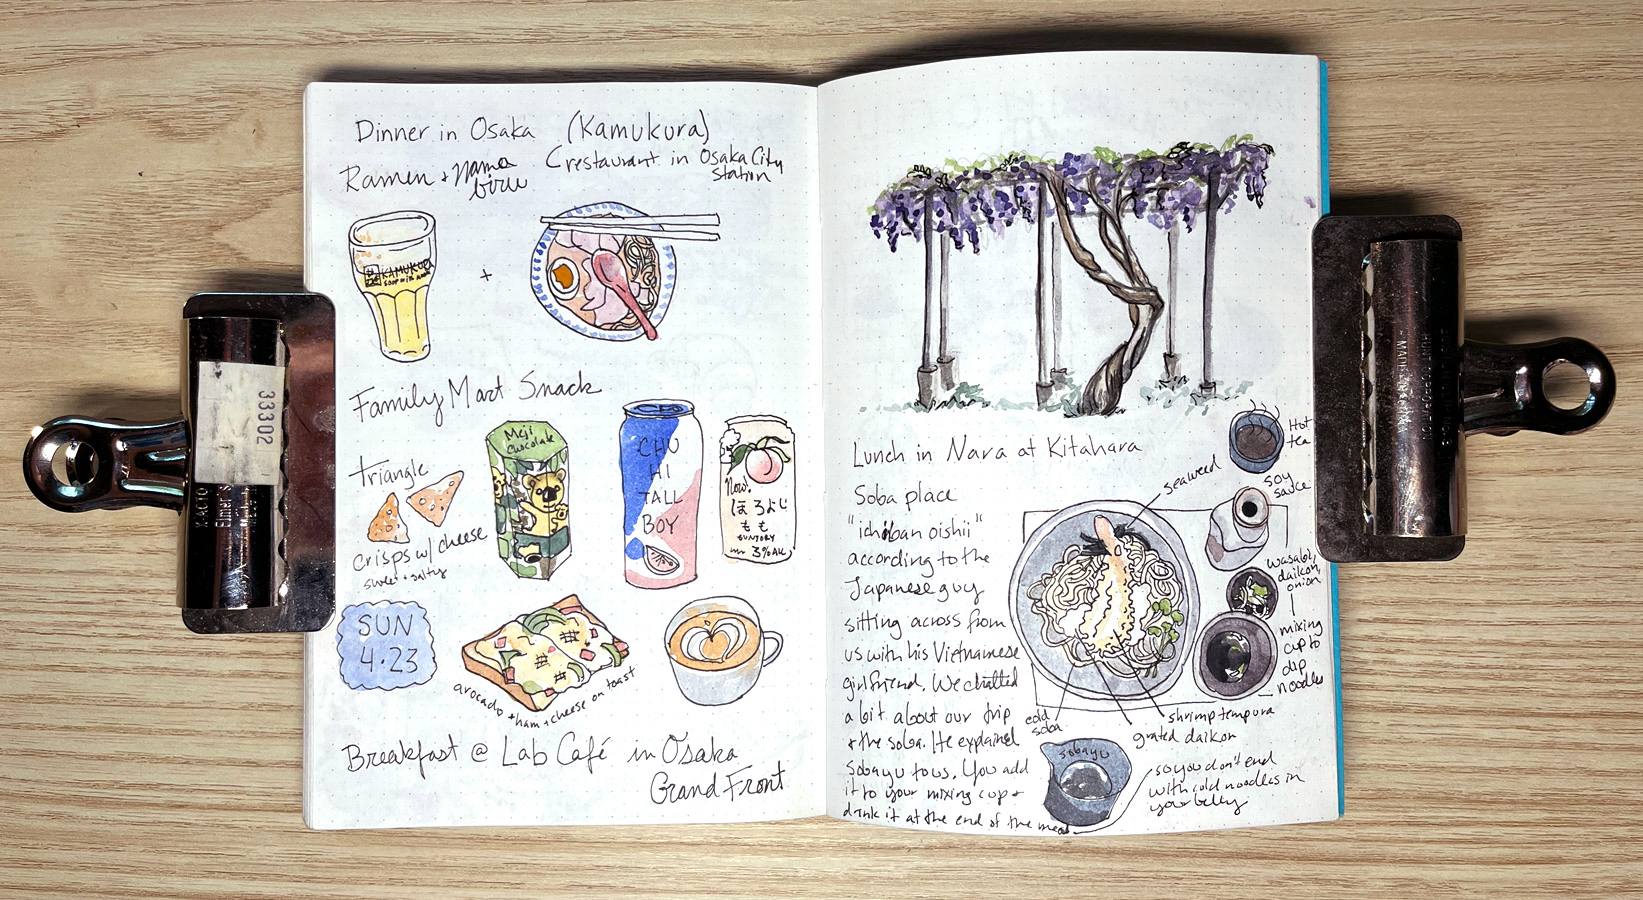 Dinner in Osaka (Kamukura)
Ramen + nama biru
(restaurant in Osaka City Station)
KAMUKURA
+
Family Mart Snack
triangle
crisps w/ cheese
sweet + salty
Meiji
Chocolate
CHU
HI
TALL
BOY
Now!
ほろよい
もも
SUNTORY
3% ALC
SUN
4.23
avocado + ham + cheese on toast
Breakfast @ Lab Café in Osaka
Grand Front
Lunch in Nara at Kitahara
Soba place
"ichiban oishii"
according to the
Japanese guy
sitting across from
us with his Vietnamese
girlfriend. We chatted
a bit about our trip
+ the soba. He explained
sobayu to us. You add
it to your mixing cup +
drink it at the end of the meal
so you don't end
with cold noodles in
your belly
Hot
tea
seaweed
soy
sauce
wasabi,
daikon,
onion
mixing
cup to
dip
noodles
shrimp tempura
grated daikon
cold
soba
sobayu
33302
X-ACTO